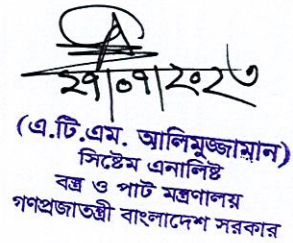 ২৭/০৭/২০২৩
(এ.টি.এম. আলিমুজ্জামান)
সিষ্টেম এনালিষ্ট
বস্ত্র ও পাট মন্ত্রণালয়
গণপ্রজাতন্ত্রী বাংলাদেশ সরকার